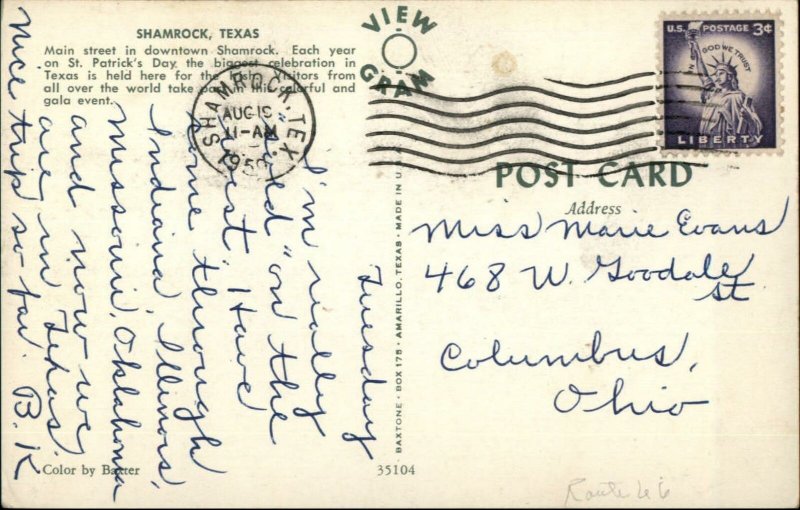 SHAMROCK, TEXAS
Main street in downtown Shamrock. Each year
on St. Patrick's Day the biggest celebration in
Texas is held here for the Irish. Visitors from
all over the world take part in this colorful and
gala event.
VIEW
GRAM
SHAMROCK, TEX
AUG 19
11-AM
U.S. POSTAGE 3¢
IN GOD WE TRUST
LIBERTY
POST CARD
Address
Miss Marie Evans
468 W. Goodale
St
Columbus,
Ohio
Tuesday
I'm really
"on the
Have
come through
Indiana, Illinois,
Missouri, Oklahoma
and now we
are in Texas.
Nice trip so far. B. K
BAXTONE · BOX 175 · AMARILLO, TEXAS · MADE IN U.S.A.
Color by Baxter
35104
Route 66